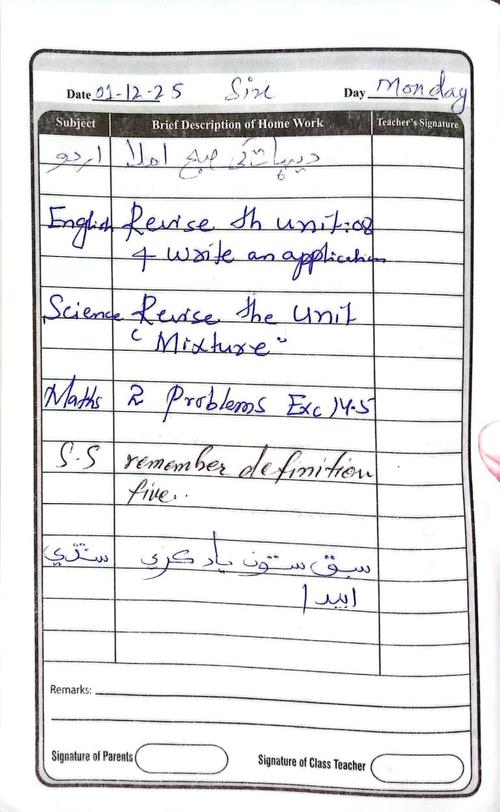 Date 01-12-25 Six Day Monday
Subject Brief Description of Home Work Teacher's Signature
اردو دیہات کی صبح املا
English Revise th unit:08
& write an application
Science Revise the Unit
"Mixture"
Maths 2 Problems Exc 14.5
S.S remember definition
five..
سنڌي سبق ستون ياد ڪري
Remarks:
Signature of Parents Signature of Class Teacher